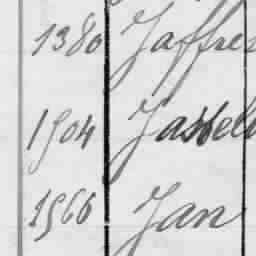 1380 Jaffres
1504 Jasselin
1566 Jan